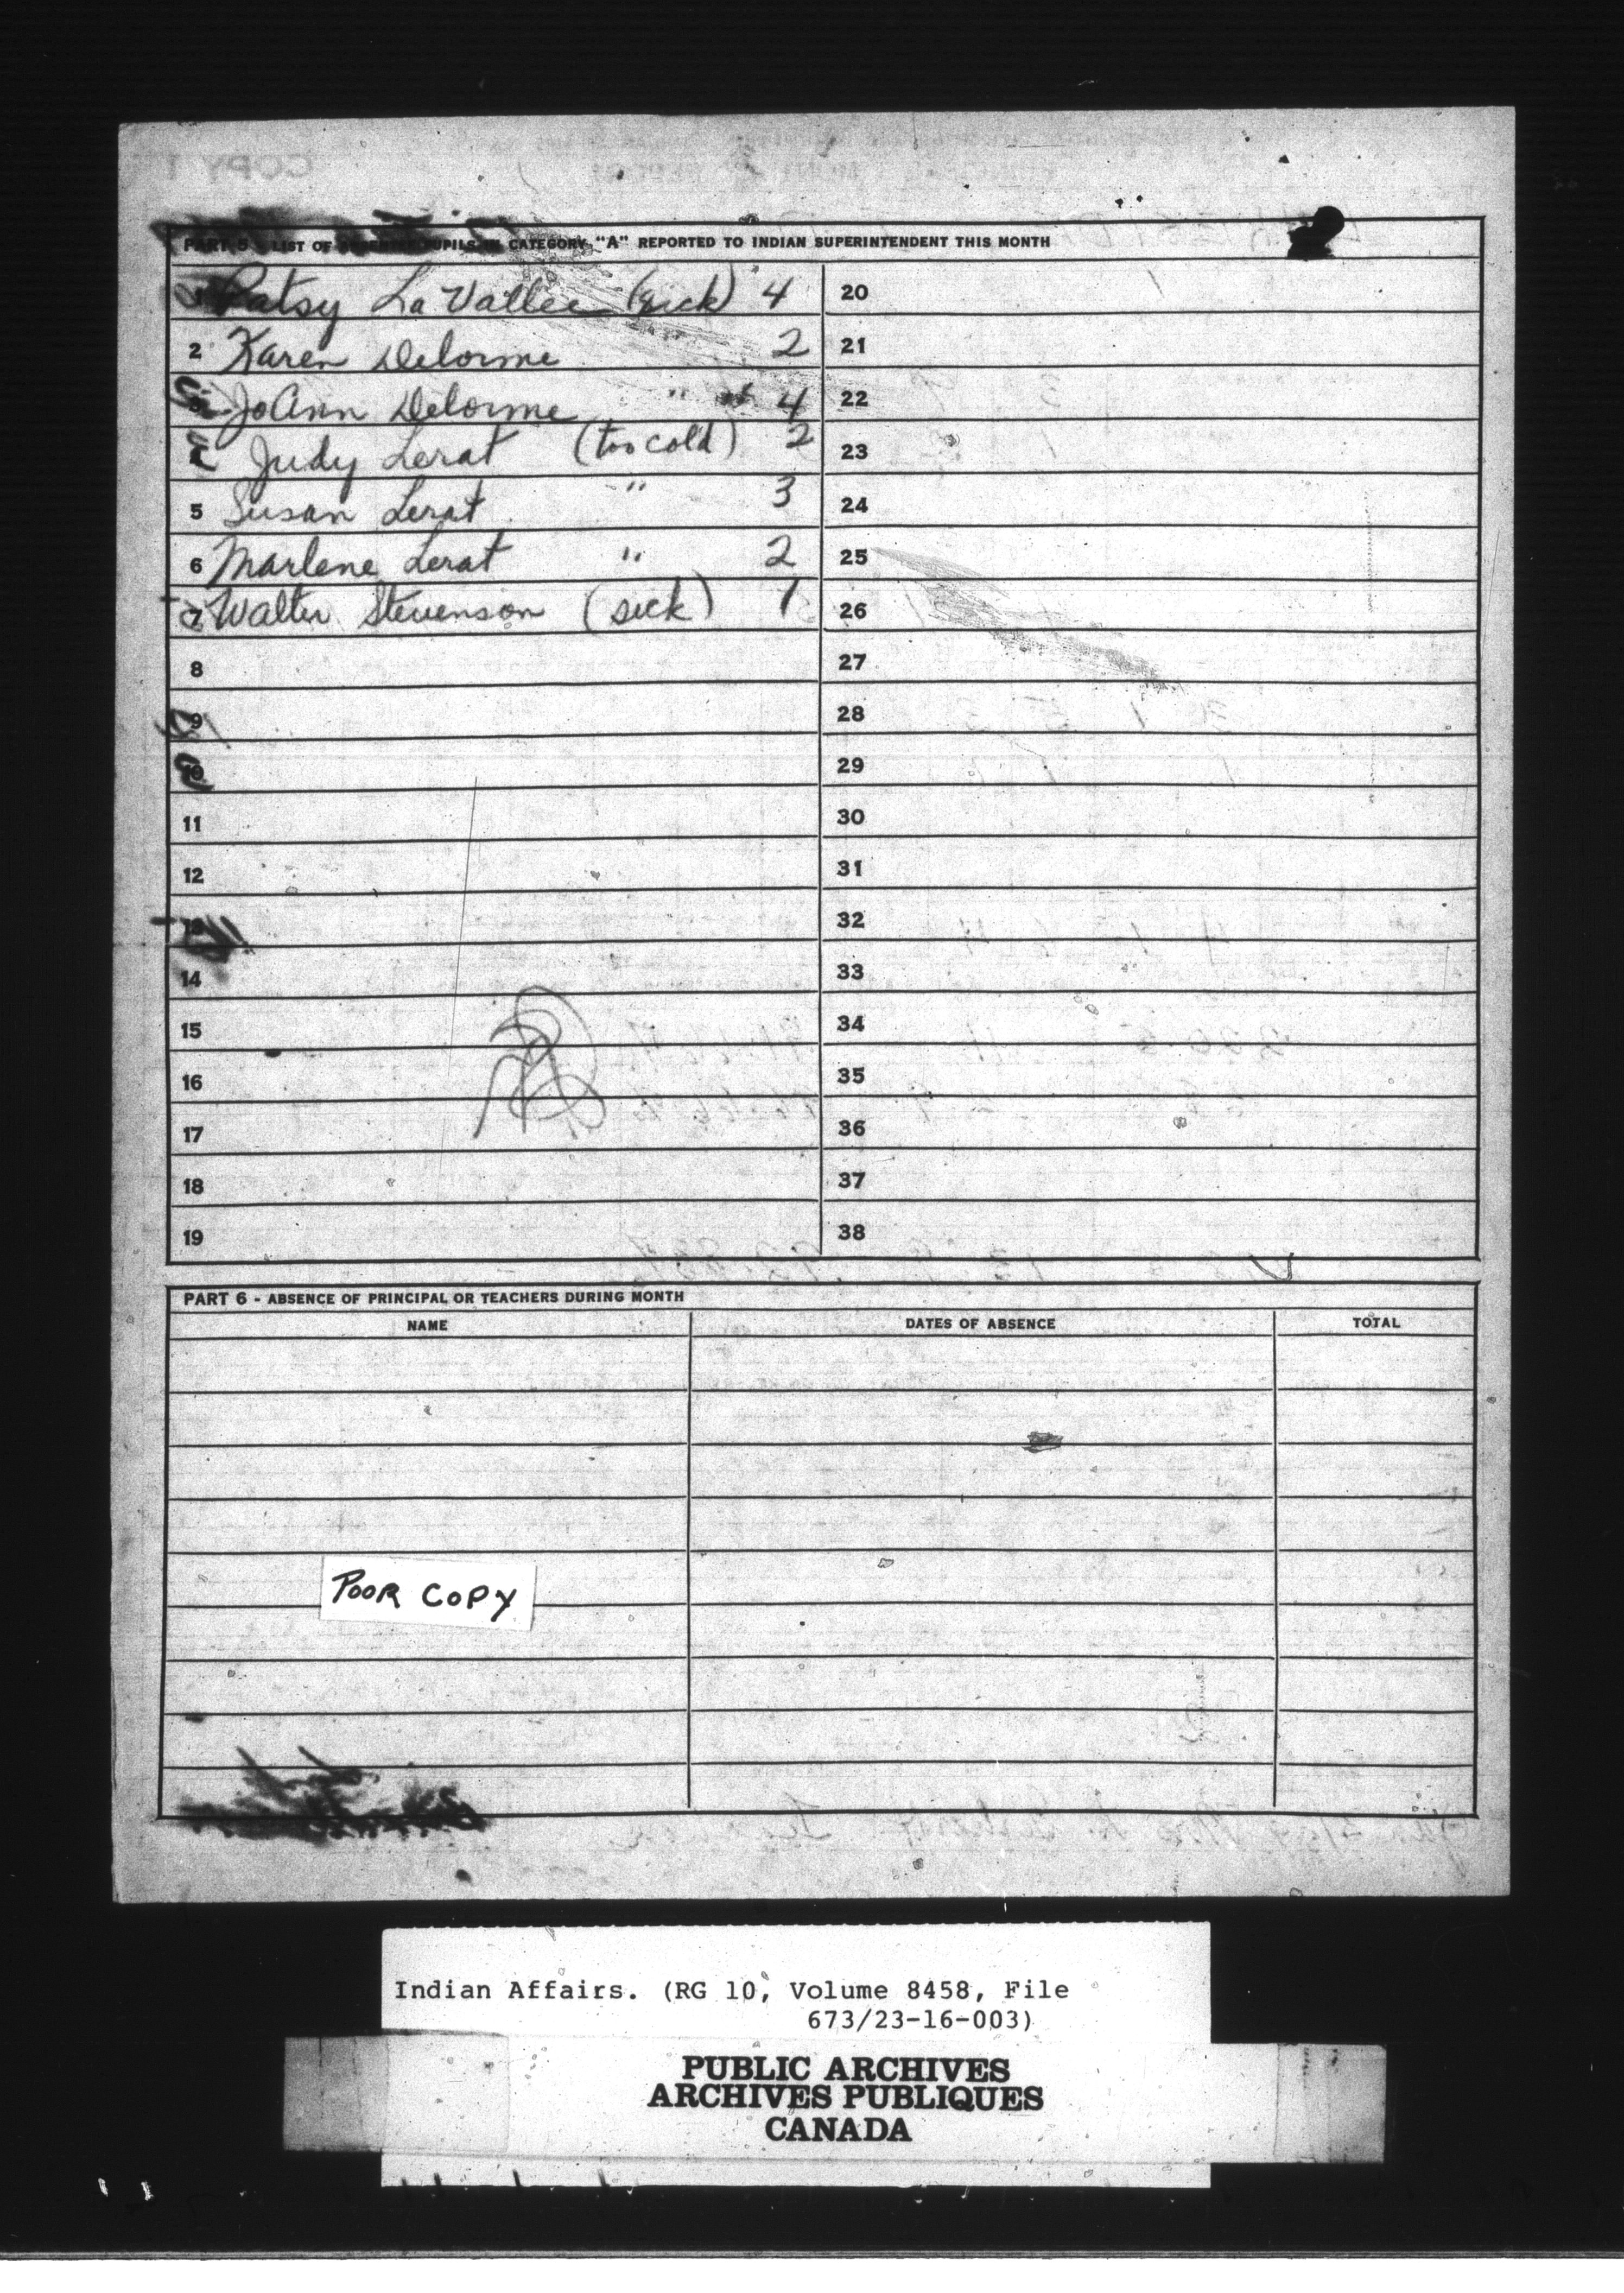 PART 5 - LIST OF ABSENTEE PUPILS IN CATEGORY "A" REPORTED TO INDIAN SUPERINTENDENT THIS MONTH
1 Patsy La Vallee (sick) 4
2 Karen Delorme 2
3 JoAnn Delorme " " 4
4 Judy Lerat (too cold) 2
5 Susan Lerat " 3
6 Marlene Lerat " 2
7 Walter Stevenson (sick) 1
8
9
10
11
12
13
14
15
16
17
18
19
20
21
22
23
24
25
26
27
28
29
30
31
32
33
34
35
36
37
38
PART 6 - ABSENCE OF PRINCIPAL OR TEACHERS DURING MONTH
NAME DATES OF ABSENCE TOTAL
POOR COPY
Indian Affairs. (RG 10, Volume 8458, File
673/23-16-003)
PUBLIC ARCHIVES
ARCHIVES PUBLIQUES
CANADA